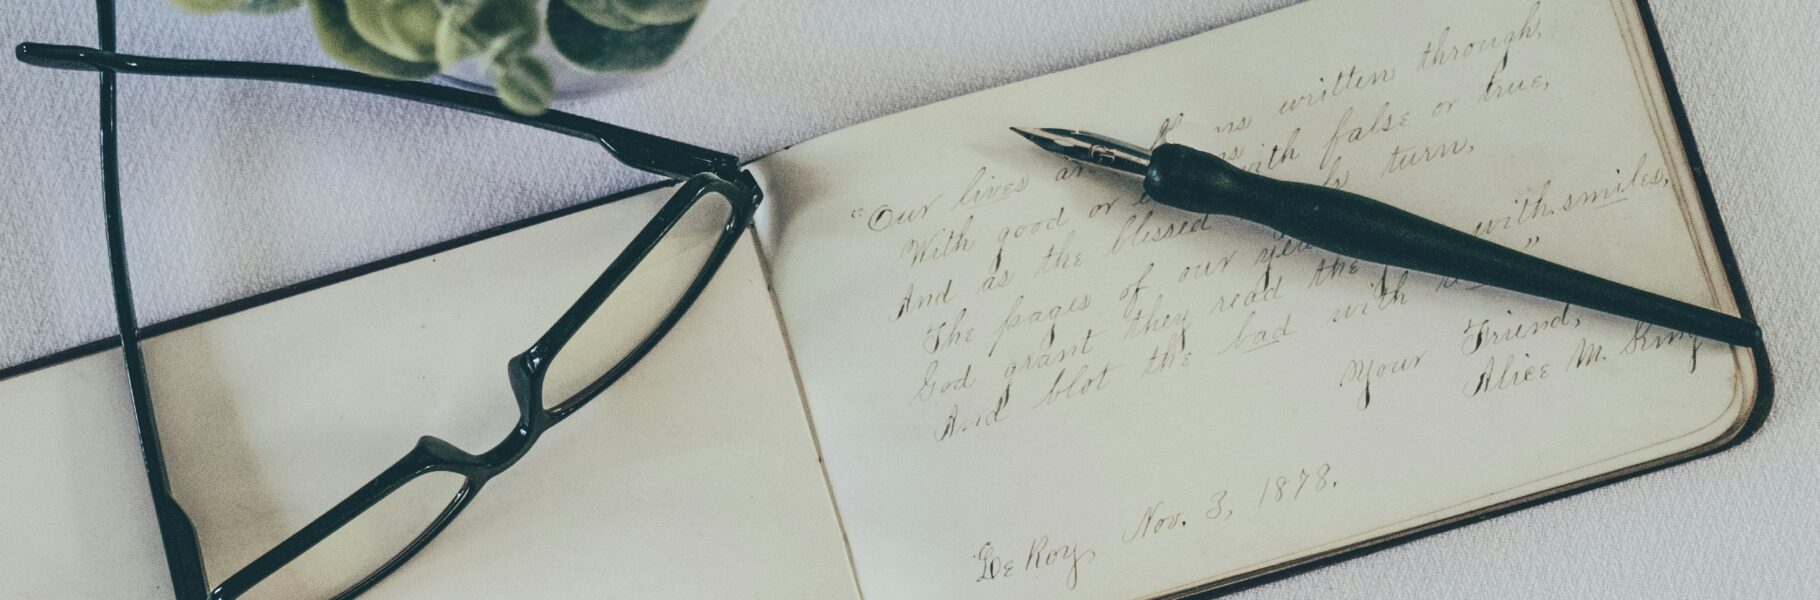 "Our lives are written through,
With good or with false or true,
And as the blessed turn,
The pages of our
God grant they read the with smiles,
And blot the bad with "
Your Friend,
Alice M. King
LeRoy, Nov. 3, 1878.